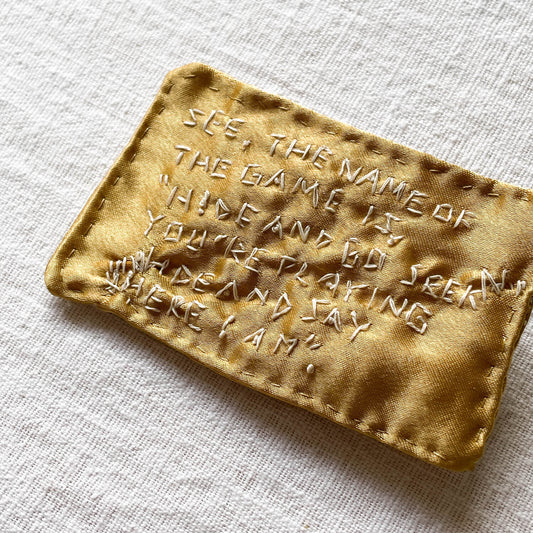 SEE, THE NAME OF
THE GAME IS,
"HIDE AND GO SEEK"
YOU'RE PLAYING
"HIDE AND SAY
HERE I AM".